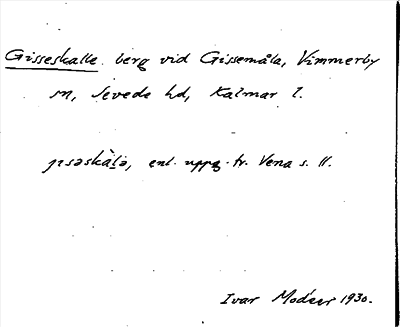 Gisseskalle. berg vid Gissemåla, Vimmerby
sn, Sevede hd, Kalmar l.
enl. uppg. fr. Vena s. 11.
Ivar Modéer 1930.